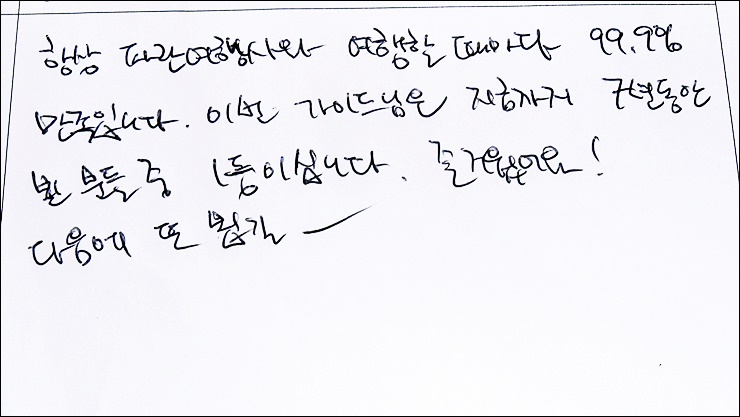 항상 파란여행사와 여행할 때마다 99.9%
만족입니다. 이번 가이드님은 지금까지 7년동안
뵌 분들 중 1등이십니다. 즐거웠어요!
다음에 또 뵙길